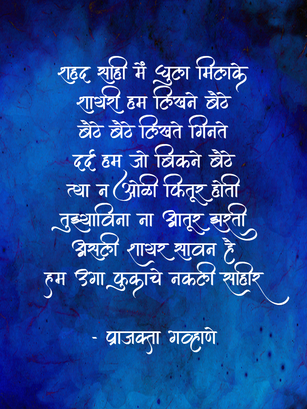 शहद साही में घुला मिलाके
शायरी हम लिखने बैठे
बैठे बैठे लिखते गिनते
दर्द हम जो बिकने बैठे
त्या न ओळी कितूर होती
तुझ्याविना ना आतूर झरती
असली शायर सावन है
हम उगा फुकाचे नकली साहीर
- प्राजक्ता गव्हाणे